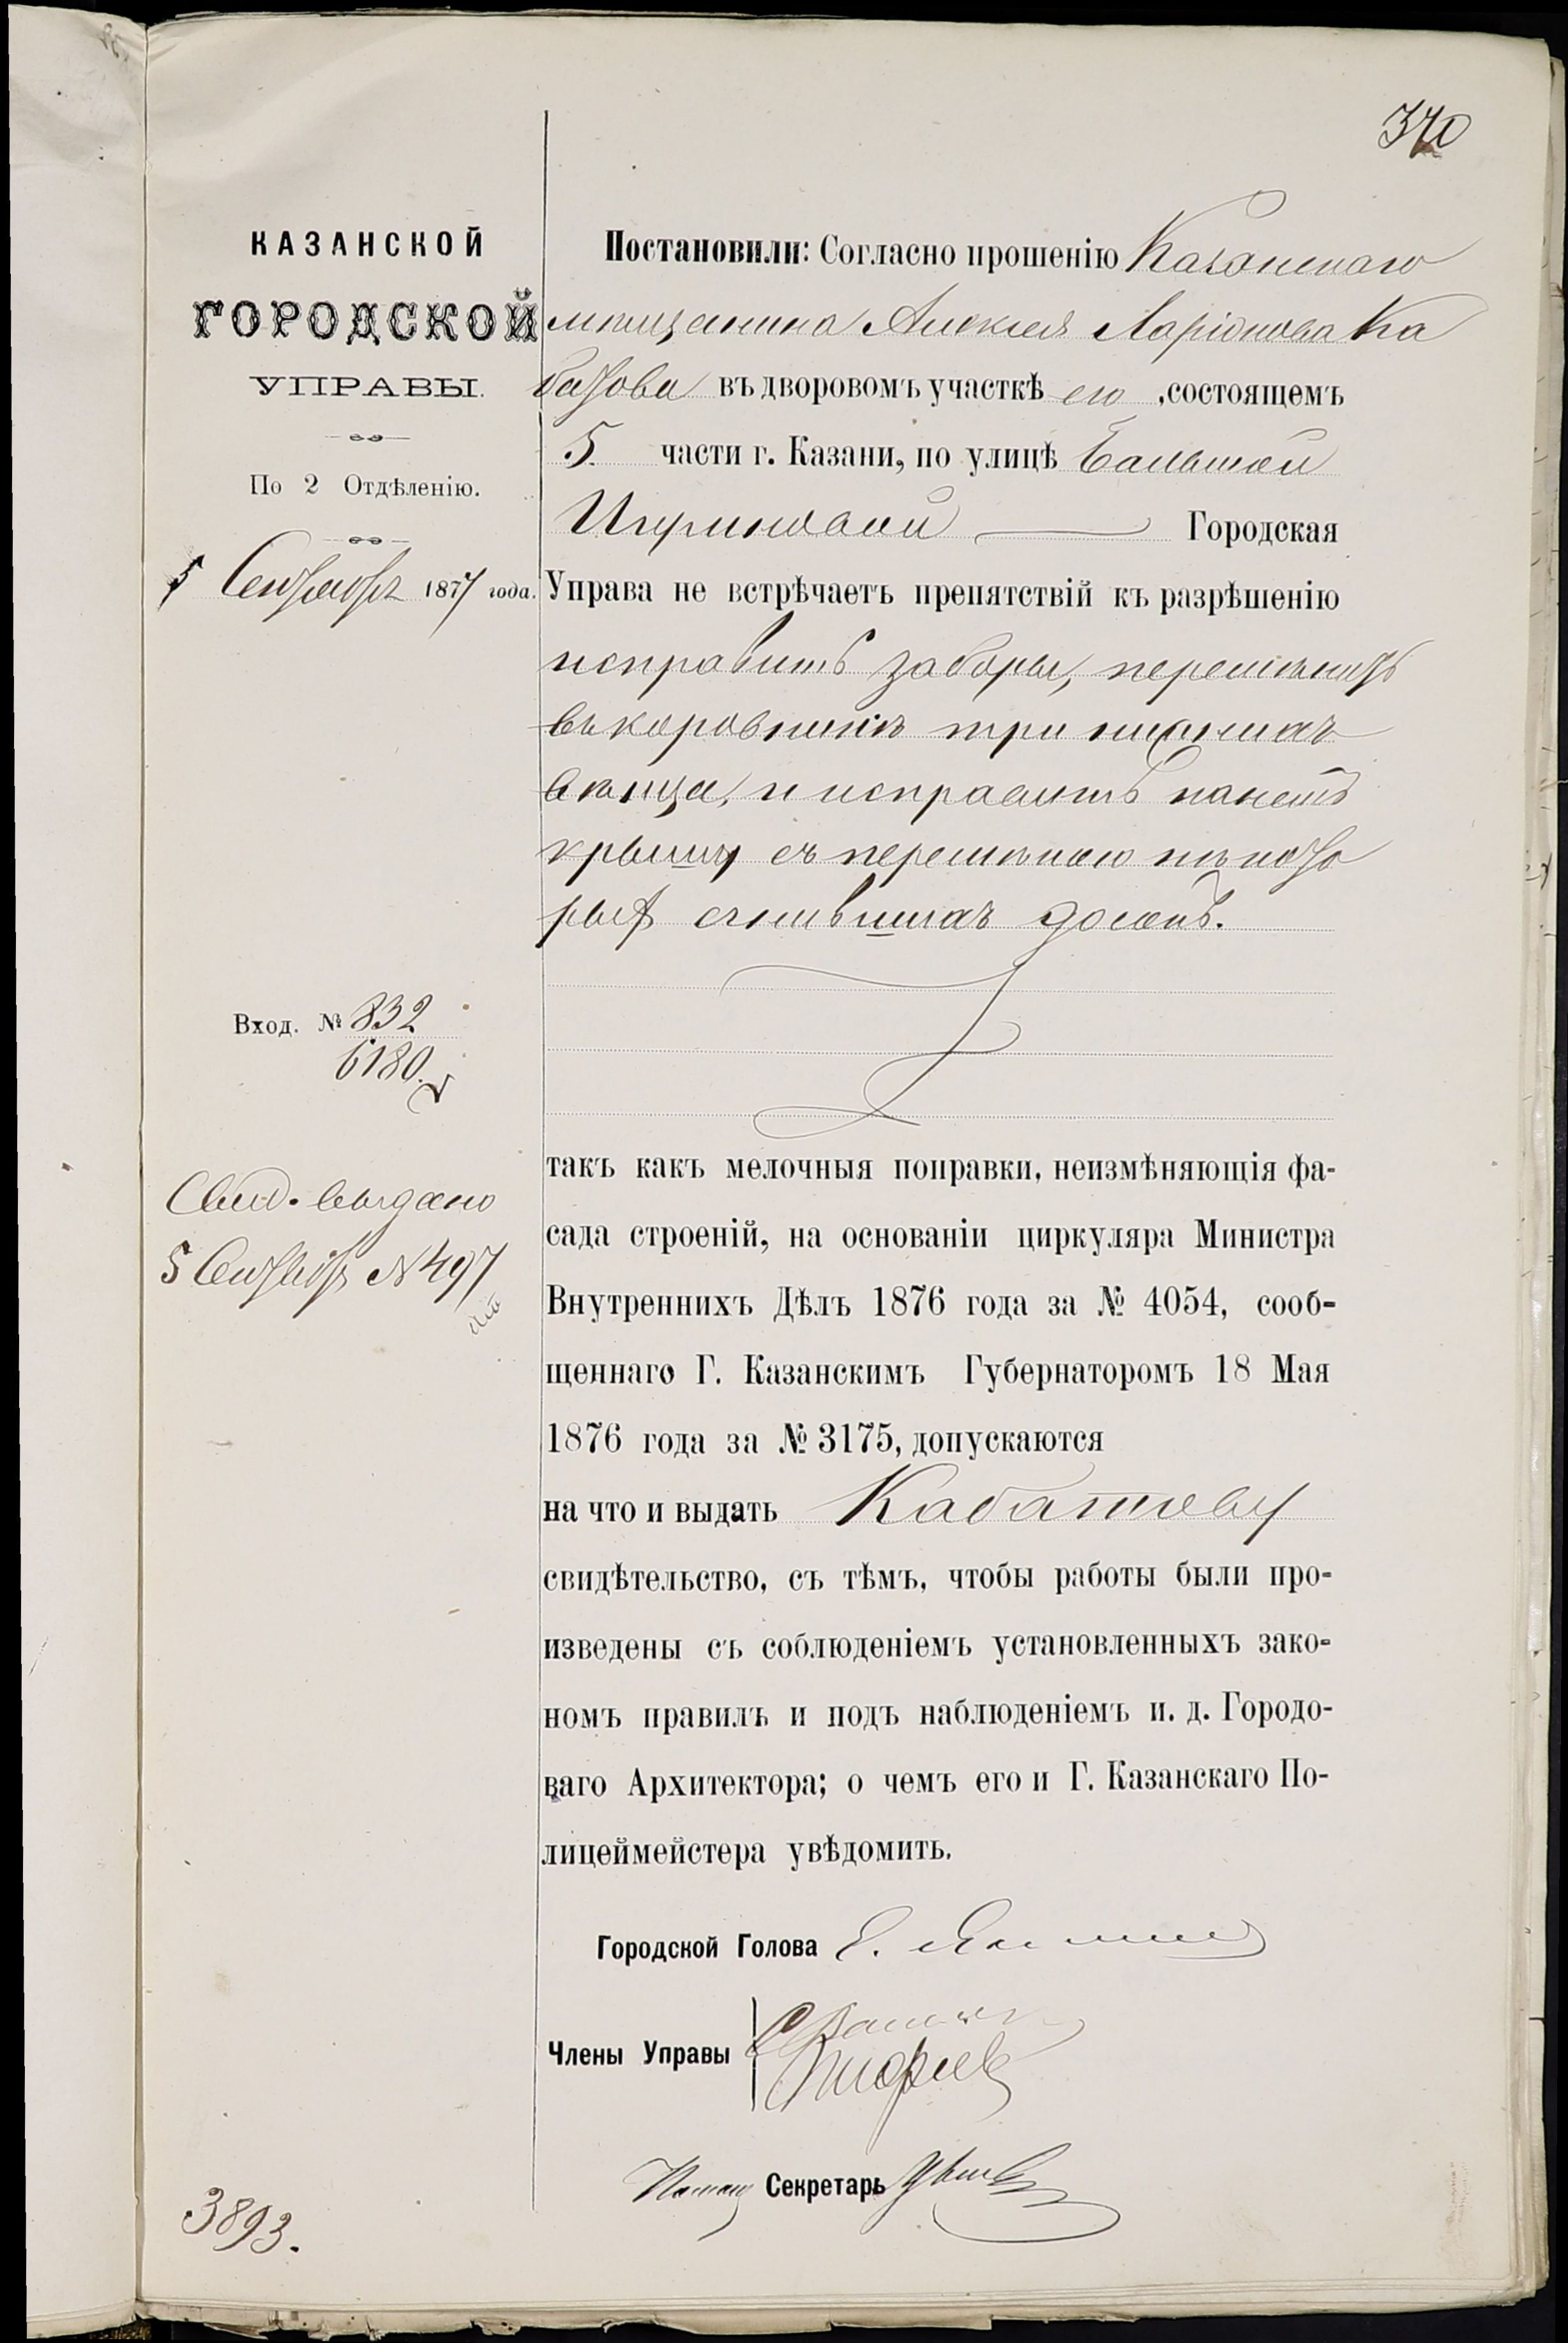 370
КАЗАНСКОЙ
ГОРОДСКОЙ
УПРАВЫ.
По 2 Отдѣленію.
5 Сентября 1877 года.
Вход. № 832
6180.
Свид. выдано
5 Сентября № 497
3893.
Постановили: Согласно прошенію Казанскаго
мѣщанина Алексѣя Ларіонова Ка
батова въ дворовомъ участкѣ его, состоящемъ
5 части г. Казани, по улицѣ Большой
Игумновой Городская
Управа не встрѣчаетъ препятствій къ разрѣшенію
исправить заборы, перемѣнить
въ коровникѣ три нижнихъ
вѣнца, и исправить на немъ
крышу съ перемѣною нѣкото
рыхъ сгнившихъ досокъ.
такъ какъ мелочныя поправки, неизмѣняющія фа-
сада строеній, на основаніи циркуляра Министра
Внутреннихъ Дѣлъ 1876 года за № 4054, сооб-
щеннаго Г. Казанскимъ Губернаторомъ 18 Мая
1876 года за № 3175, допускаются
на что и выдать Кабатову
свидѣтельство, съ тѣмъ, чтобы работы были про-
изведены съ соблюденіемъ установленныхъ зако-
номъ правилъ и подъ наблюденіемъ и. д. Городо-
ваго Архитектора; о чемъ его и Г. Казанскаго По-
лицеймейстера увѣдомить.
Городской Голова
Члены Управы
Секретарь